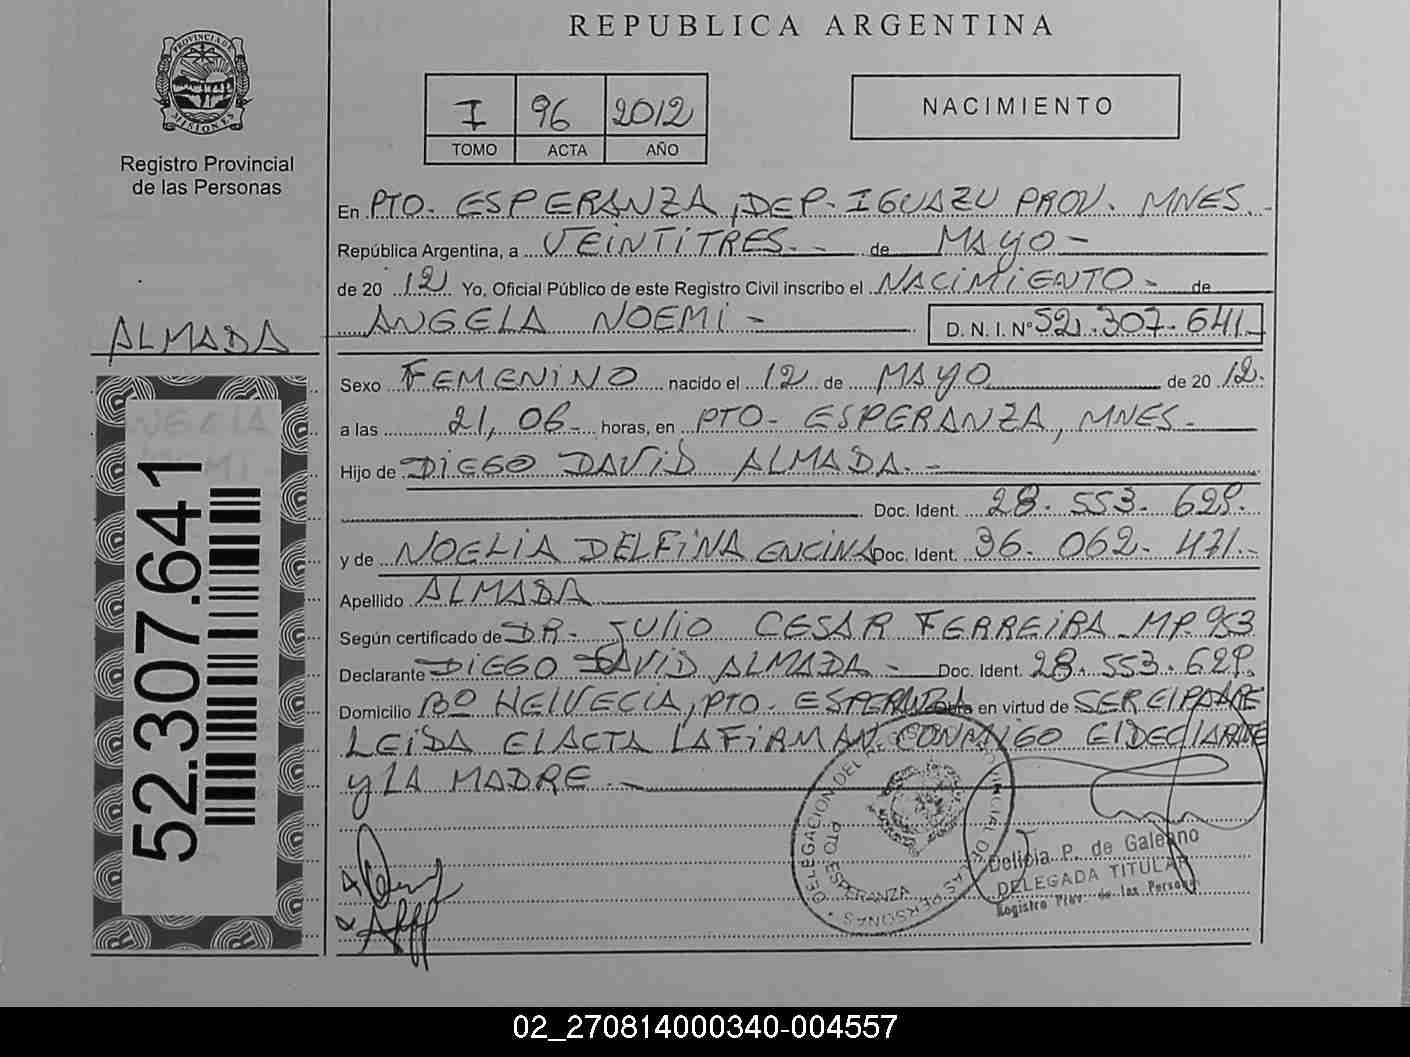 REPUBLICA ARGENTINA
PROVINCIA DE MISIONES
Registro Provincial
de las Personas
I 96 2012
TOMO ACTA AÑO
NACIMIENTO
En PTO. ESPERANZA, DEP. IGUAZU PROV. MNES.
República Argentina, a VEINTITRES.- de MAYO -
de 20 12 Yo, Oficial Público de este Registro Civil inscribo el NACIMIENTO - de
ANGELA NOEMI - D. N. I. N° 52.307.641-
ALMADA
Sexo FEMENINO nacido el 12 de MAYO de 20 12.
a las 21,06- horas, en PTO- ESPERANZA, MNES-
Hijo de DIEGO DAVID ALMADA.-
Doc. Ident. 28.553.629.
y de NOELIA DELFINA ENCINA Doc. Ident. 36.062.471.-
Apellido ALMADA
Según certificado de DR. JULIO CESAR FERREIRA MP. 953
Declarante DIEGO DAVID ALMADA - Doc. Ident. 28.553.629.
Domicilio Bº HELVECIA, PTO. ESPERANZA en virtud de SER EL PADRE
LEIDA EL ACTA LA FIRMAN CONMIGO El DEClARANTE
y LA MADRE.-
52.307.641
DELEGACION DEL REGISTRO PROVINCIAL DE LAS PERSONAS
PTO. ESPERANZA
Delicia P. de Galeano
DELEGADA TITULAR
Registro Prov. de las Personas
02_270814000340-004557